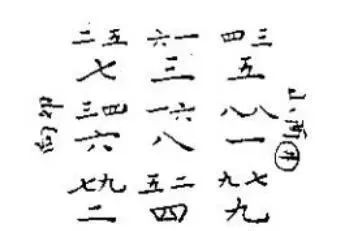 二五 六一 四三
七 三 五
三四 一六 八八
六 八 一
七九 五二 九七
二 四 九